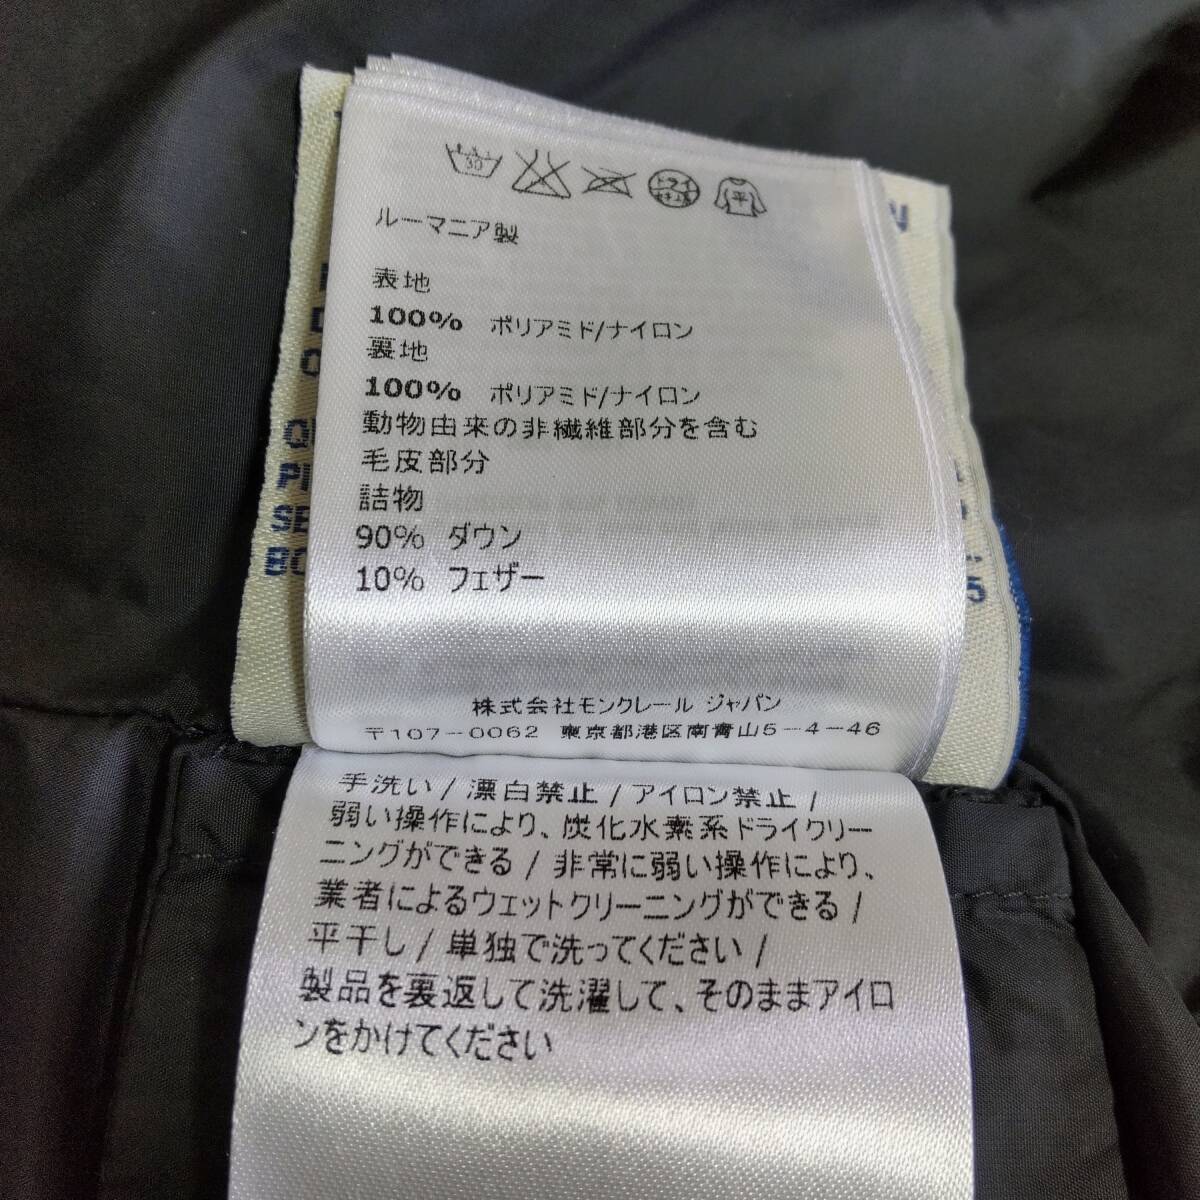 30
ドライ
平
ルーマニア製
表地
100% ポリアミド/ナイロン
裏地
100% ポリアミド/ナイロン
動物由来の非繊維部分を含む
毛皮部分
詰物
90% ダウン
10% フェザー
株式会社モンクレール ジャパン
〒107-0062 東京都港区南青山5-4-46
手洗い / 漂白禁止 / アイロン禁止 /
弱い操作により、炭化水素系ドライクリー
ニングができる / 非常に弱い操作により、
業者によるウェットクリーニングができる /
平干し / 単独で洗ってください /
製品を裏返して洗濯して、そのままアイロ
ンをかけてください